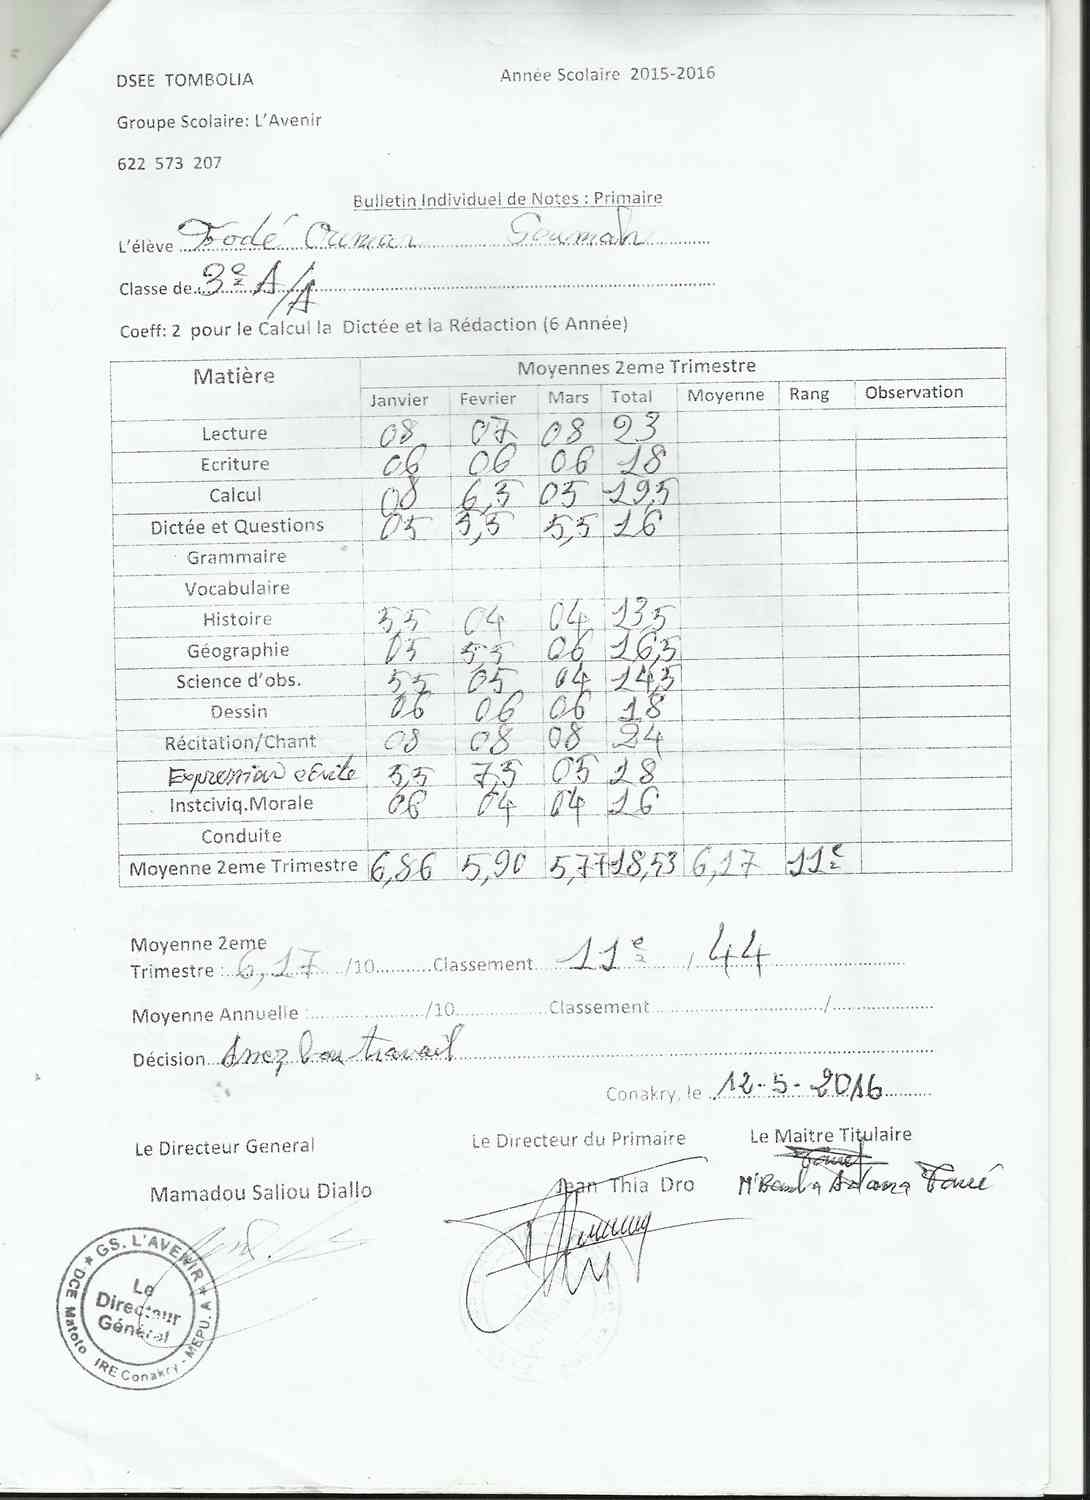 DSEE TOMBOLIA Année Scolaire 2015-2016
Groupe Scolaire: L'Avenir
622 573 207
Bulletin Individuel de Notes : Primaire
L'élève Fodé Oumar Soumah
Classe de 3e A/A
Coeff: 2 pour le Calcul la Dictée et la Rédaction (6 Année)
Matière Moyennes 2eme Trimestre
Janvier Fevrier Mars Total Moyenne Rang Observation
Lecture 08 07 08 23
Ecriture 06 06 06 18
Calcul 08 6,5 05 19,5
Dictée et Questions 05 5,5 5,5 16
Grammaire
Vocabulaire
Histoire 5,5 04 04 13,5
Géographie 05 5,5 06 16,5
Science d'obs. 5,5 05 04 14,5
Dessin 06 06 06 18
Récitation/Chant 08 08 08 24
Expression écrite 5,5 7,5 05 18
Instciviq.Morale 06 04 04 16
Conduite
Moyenne 2eme Trimestre 6,86 5,90 5,77 18,53 6,17 11e
Moyenne 2eme
Trimestre : 6,17 /10 Classement 11e / 44
Moyenne Annuelle : /10 Classement /
Décision Assez bon travail
Conakry, le 12-5-2016
Le Directeur General Le Directeur du Primaire Le Maitre Titulaire
Mamadou Saliou Diallo Jean Thia Dro M'Bemba Adama Touré
GS. L'AVENIR
Le
Directeur
Général
DCE Matoto IRE Conakry - MEPU. A